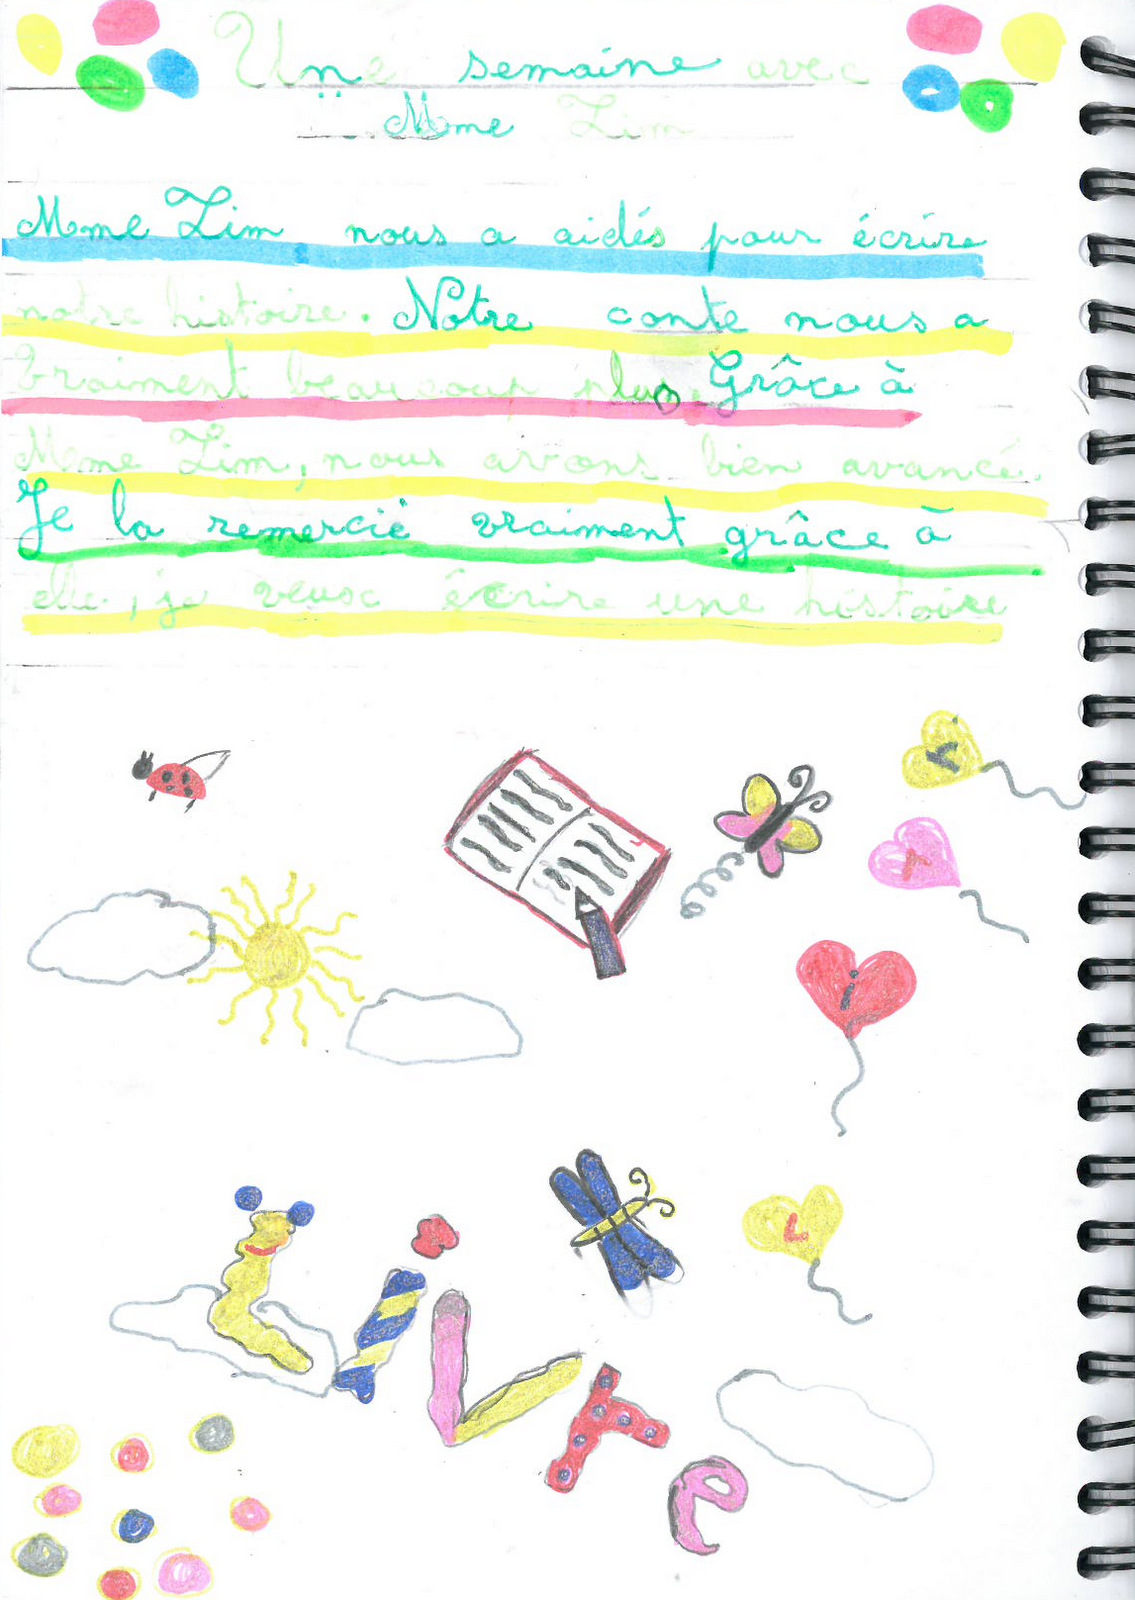 Une semaine avec
Mme Lim
Mme Lim nous a aidés pour écrire
notre histoire. Notre conte nous a
vraiment beaucoup plus. Grâce à
Mme Lim, nous avons bien avancé.
Je la remercie vraiment grâce à
elle, je veux écrire une histoire
r
i
L
Livre